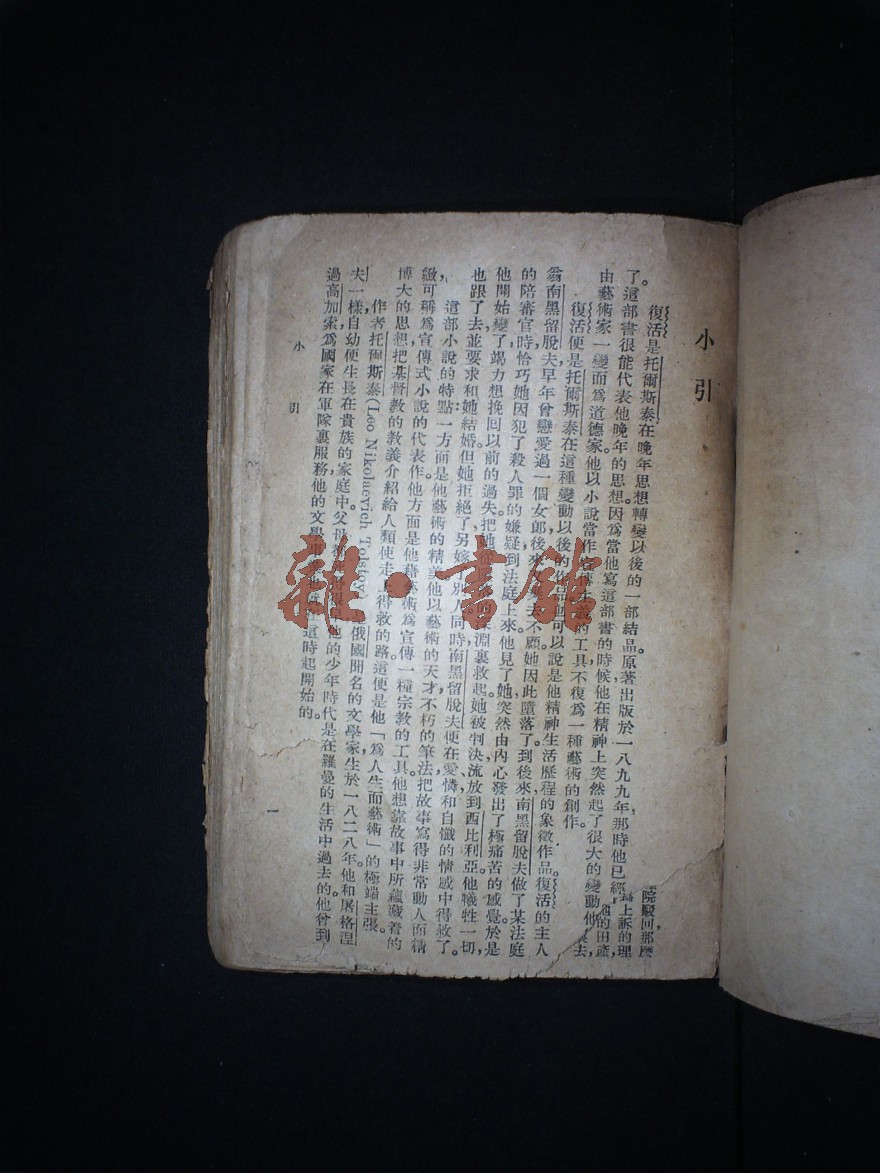 小引
復活是托爾斯泰在晚年思想轉變以後的一部結晶。原著出版於一八九九年，那時他已經
了。這部書很能代表他晚年的思想。因爲當他寫這部書的時候，他在精神上突然起了很大的變動，他 去，
由藝術家一變而爲道德家。他以小說當作宣傳主義的工具，不復爲一種藝術的創作。
復活便是托爾斯泰在這種變動以後的作品，也可以說是他精神生活歷程的象徵作品。復活的主人
翁南黑留脫夫早年曾戀愛過一個女郎，後來又棄去不顧，她因此墮落了。到後來南黑留脫夫做了某法庭
的陪審官時，恰巧她因犯了殺人罪的嫌疑到法庭上來。他見了她，突然由內心發出了極痛苦的感覺，於是
他開始變了，竭力想挽回以前的過失，把她從 的 淵裏救起。她被判決流放到西比利亞，他犧牲一切，
也跟了去，並要求和她結婚。但她拒絕了，另嫁了別人。同時，南黑留脫夫便在愛憐和自懺的情感中得救了。
這部小說的特點：一方面是他藝術的精美。他以藝術的天才，不朽的筆法，把故事寫得非常動人而精
緻，可稱爲宣傳式小說的代表作。他方面是他藉藝術爲宣傳一種宗教的工具。他想靠故事中所蘊藏着的
博大的思想，把基督教的教義介紹給人類，使走上得救的路。這便是他「爲人生而藝術」的極端主張。
作者托爾斯泰(Leo Nikolaevich Tolstoy) 俄國聞名的文學家，生於一八二八年。他和屠格涅
夫一樣，自幼便生長在貴族的家庭中，父母 他的少年時代是在羅曼的生活中過去的。他曾到
過高加索，爲國家在軍隊裏服務，他的文學 這時起開始的。
小引
一
院駁回，那麼
爲上訴的理
的田產，
雜·書館